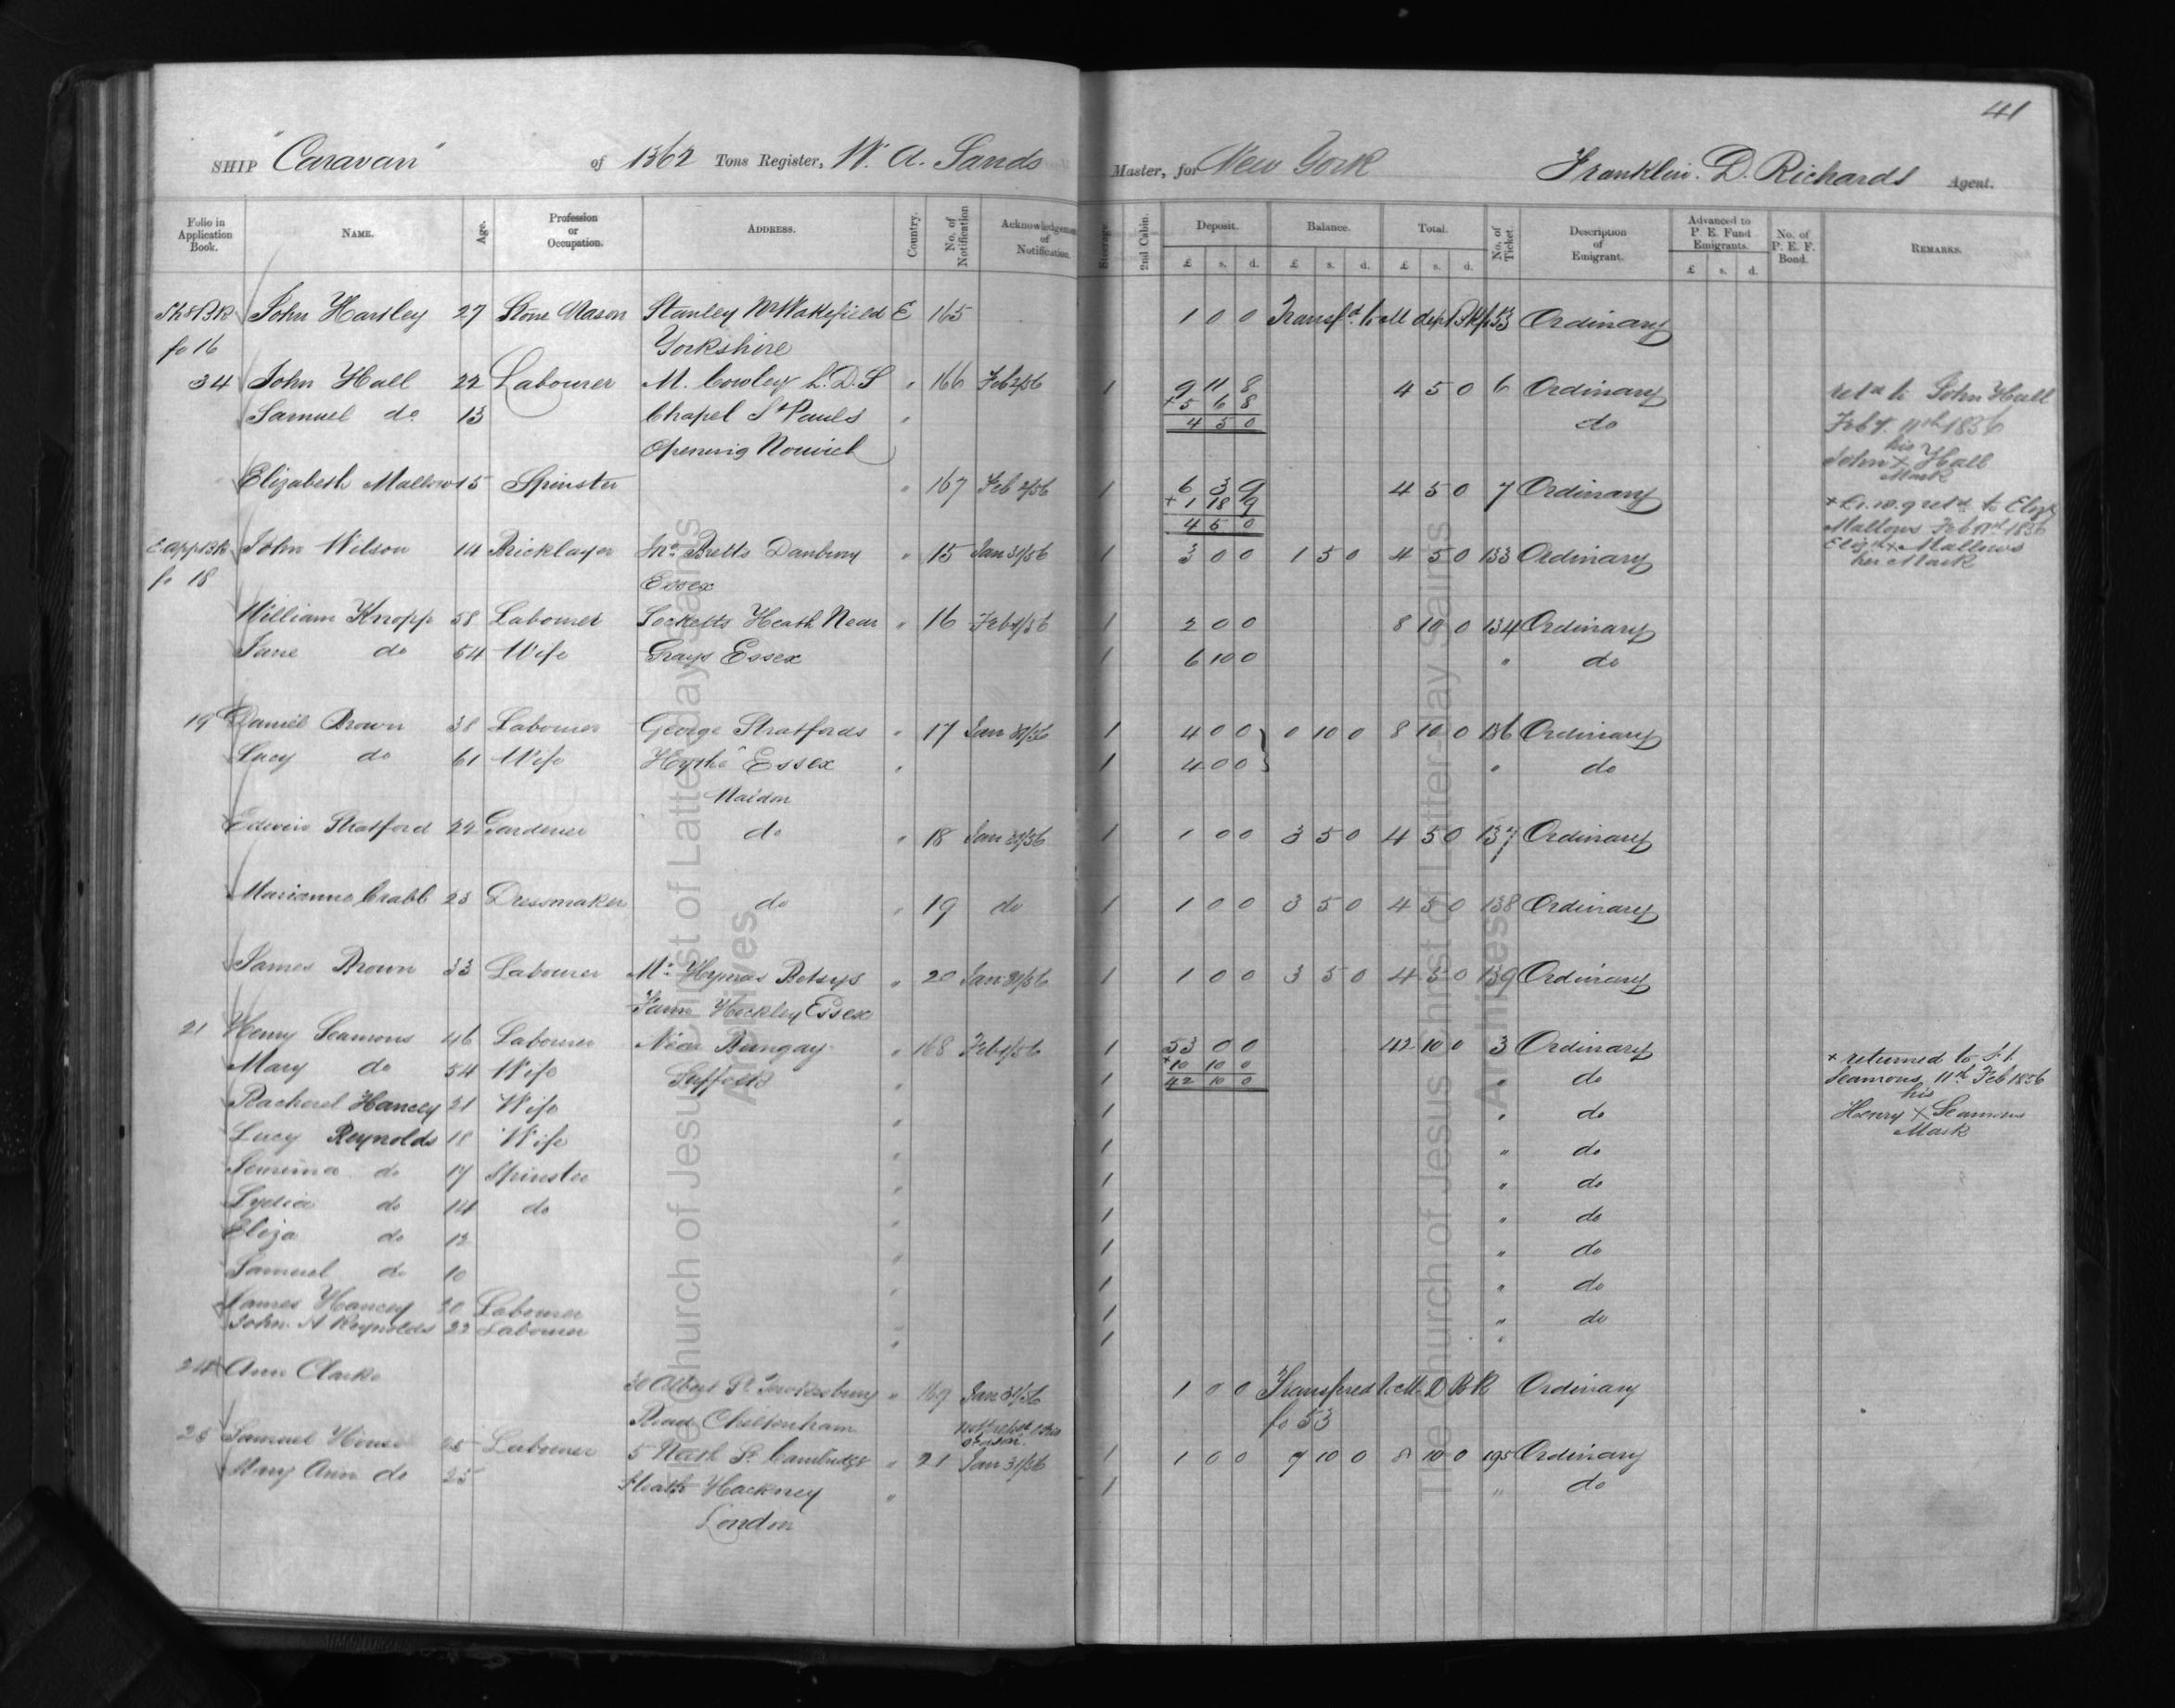 41
SHIP "Caravan" of 1362 Tons Register, W. A. Sands Master, for New York Franklin. D. Richards Agent.
Folio in Application Book. NAME. Age. Profession or Occupation. ADDRESS. Country. No. of Notification Acknowledgement of Notification. Steerage 2nd Cabin. Deposit. £ s. d. Balance. £ s. d. Total. £ s. d. No. of Ticket. Description of Emigrant. Advanced to P. E. Fund Emigrants. £ s. d. No. of P. E. F. Bond. REMARKS.
John Hartley 27 Stone Mason Stanley Nr Wakefield E 165 1 0 0 Ordinary
fo 16 Yorkshire
34 John Hall 22 Labourer M. Cowley L.D.S " 166 Feb 2/56 1 9 11 8 4 5 0 6 Ordinary retd to John Hall
Samuel do 13 Chapel St Pauls " + 5 6 8 do Feby. 11th 1856
4 5 0 his
Opening Norwich John X Hall
Mark
Elizabeth Mallows 15 Spinster " 167 Feb 2/56 1 6 3 9 4 5 0 7 Ordinary
+ 1 18 9 retd to Eliz
4 5 0 Mallows
John Wilson 14 Bricklayer Bretts Danbury " 15 Jan 31/56 1 3 0 0 1 5 0 4 5 0 133 Ordinary Mallows
fo 18 Essex her Mark
William Knopp 58 Labourer Socketts Heath Near " 16 1 2 0 0 8 10 0 134 Ordinary
Jane do 54 Wife Grays Essex 1 6 10 0 " do
19 Daniel Brown 38 Labourer George Stratfords " 17 1 4 0 0 0 10 0 8 10 0 136 Ordinary
Lucy do 61 Wife Hythe Essex " 1 4 0 0 " do
Maldon
Edwin Stratford 22 Gardener do " 18 1 1 0 0 3 5 0 4 5 0 137 Ordinary
Marianne Crabb 23 Dressmaker do " 19 do 1 1 0 0 3 5 0 4 5 0 138 Ordinary
James Brown 33 Labourer Betsys " 20 Jan 31/56 1 1 0 0 3 5 0 4 5 0 139 Ordinary
Farm Hockley Essex
21 Henry Seamons 46 Labourer Near Bungay " 168 1 53 0 0 42 10 0 3 Ordinary
+ 10 10 0 + returned to
Mary do 54 Wife Suffolk " 1 42 10 0 " do Seamons 11th Feb 1856
his
Racherel Hancey 21 Wife " 1 " do Henry X Seamons
Mark
Lucy Reynolds 18 Wife " 1 " do
Jemima do 17 Spinster " 1 " do
Lydia do 14 do " 1 " do
Eliza do 12 " 1 " do
Samuel do 10 " 1 " do
James Hancey 20 Labourer " 1 " do
John A Reynolds 22 Labourer " 1 "
24 Ann Clarke 30 Albert St Tewkesbury " 169 Jan 31/56 1 0 0 Ordinary
Road Cheltenham fo 53
25 Samuel House 25 Labourer 5 Nash St Cambridge " 21 Jan 31/56 1 1 0 0 7 10 0 8 10 0 195 Ordinary
Mary Ann do 25 Heath Hackney " 1 " do
London
The Church of Jesus Christ of Latter-day Saints
Archives
The Church of Jesus Christ of Latter-day Saints
Archives